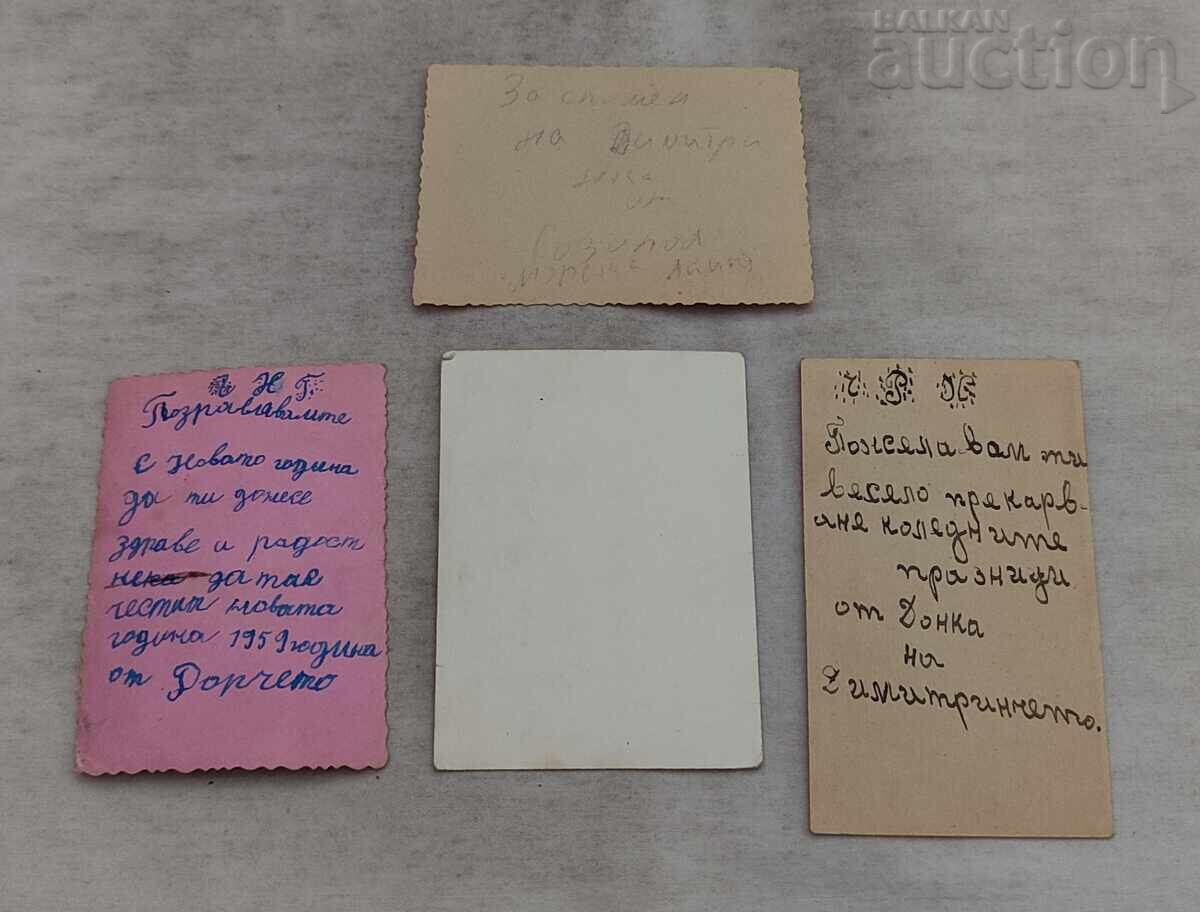 BALKAN
auction
За спомен
на Димитри
нка
от
Ч Н Г
Позравлавалите
с Новато година
да ти донесе
здраве и радост
нека да таѐ
честит новата
година 1959 година
от Дорчето
Ч Р К
Пожелавам ти
весело прекарв-
ане коледните
празници
от Донка
на
Димитринчето.